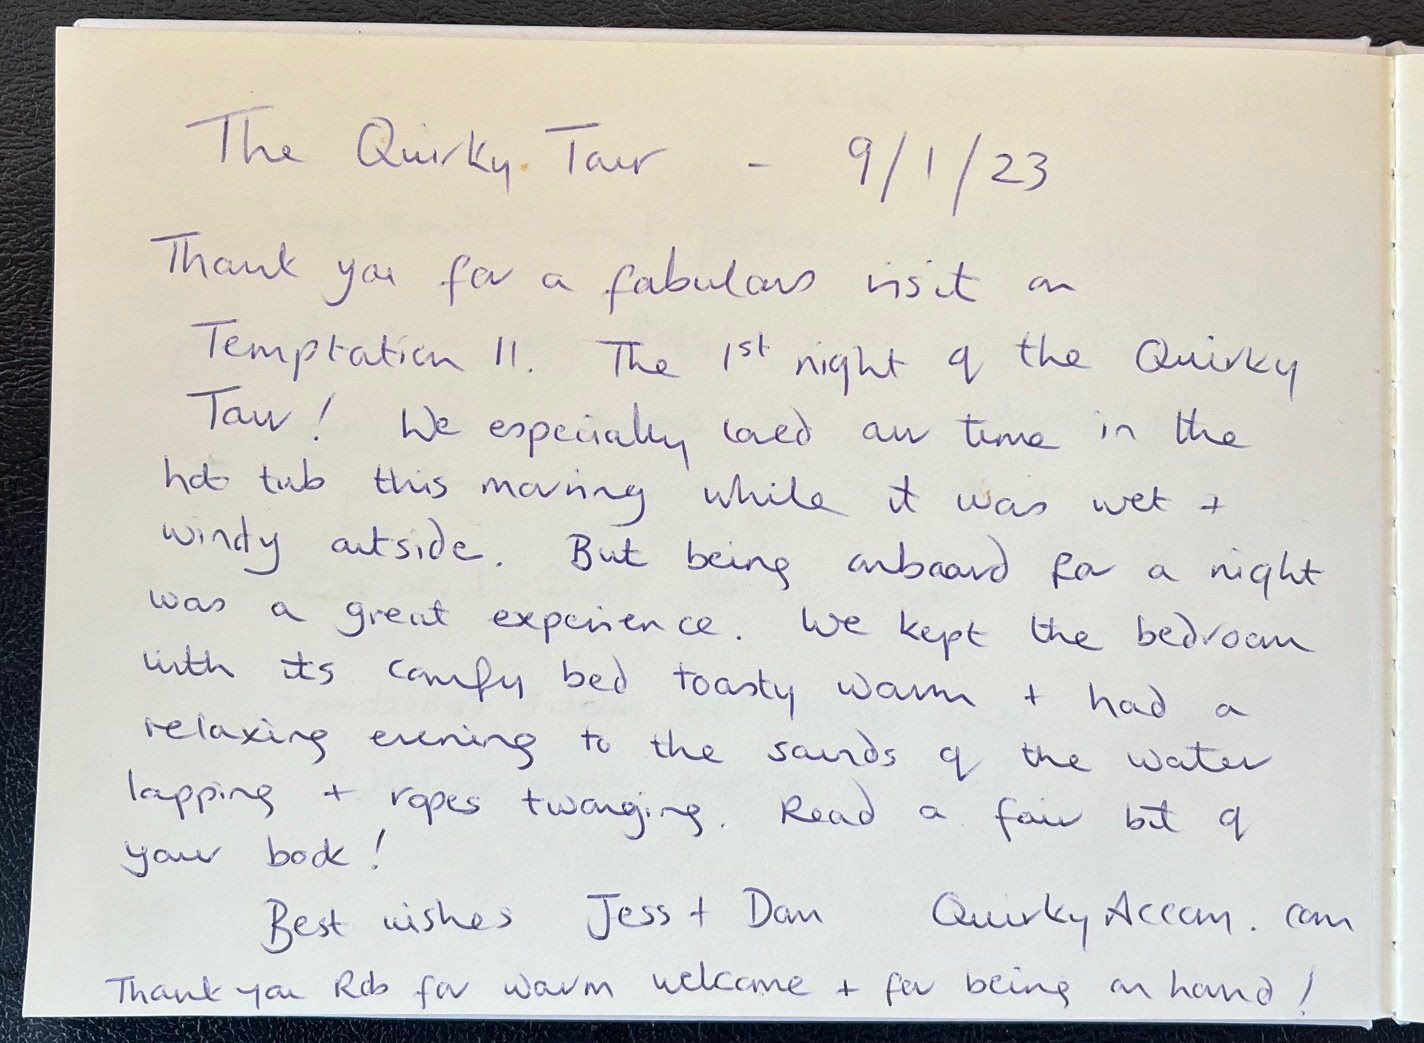 The Quirky Tour - 9/1/23
Thank you for a fabulous visit on
Temptation II. The 1st night of the Quirky
Tour! We especially loved our time in the
hot tub this morning while it was wet +
windy outside. But being onboard for a night
was a great experience. We kept the bedroom
with its comfy bed toasty warm + had a
relaxing evening to the sounds of the water
lapping + ropes twanging. Read a fair bit of
your book!
Best wishes Jess + Dan QuirkyAccom.com
Thank you Rob for warm welcome + for being on hand!